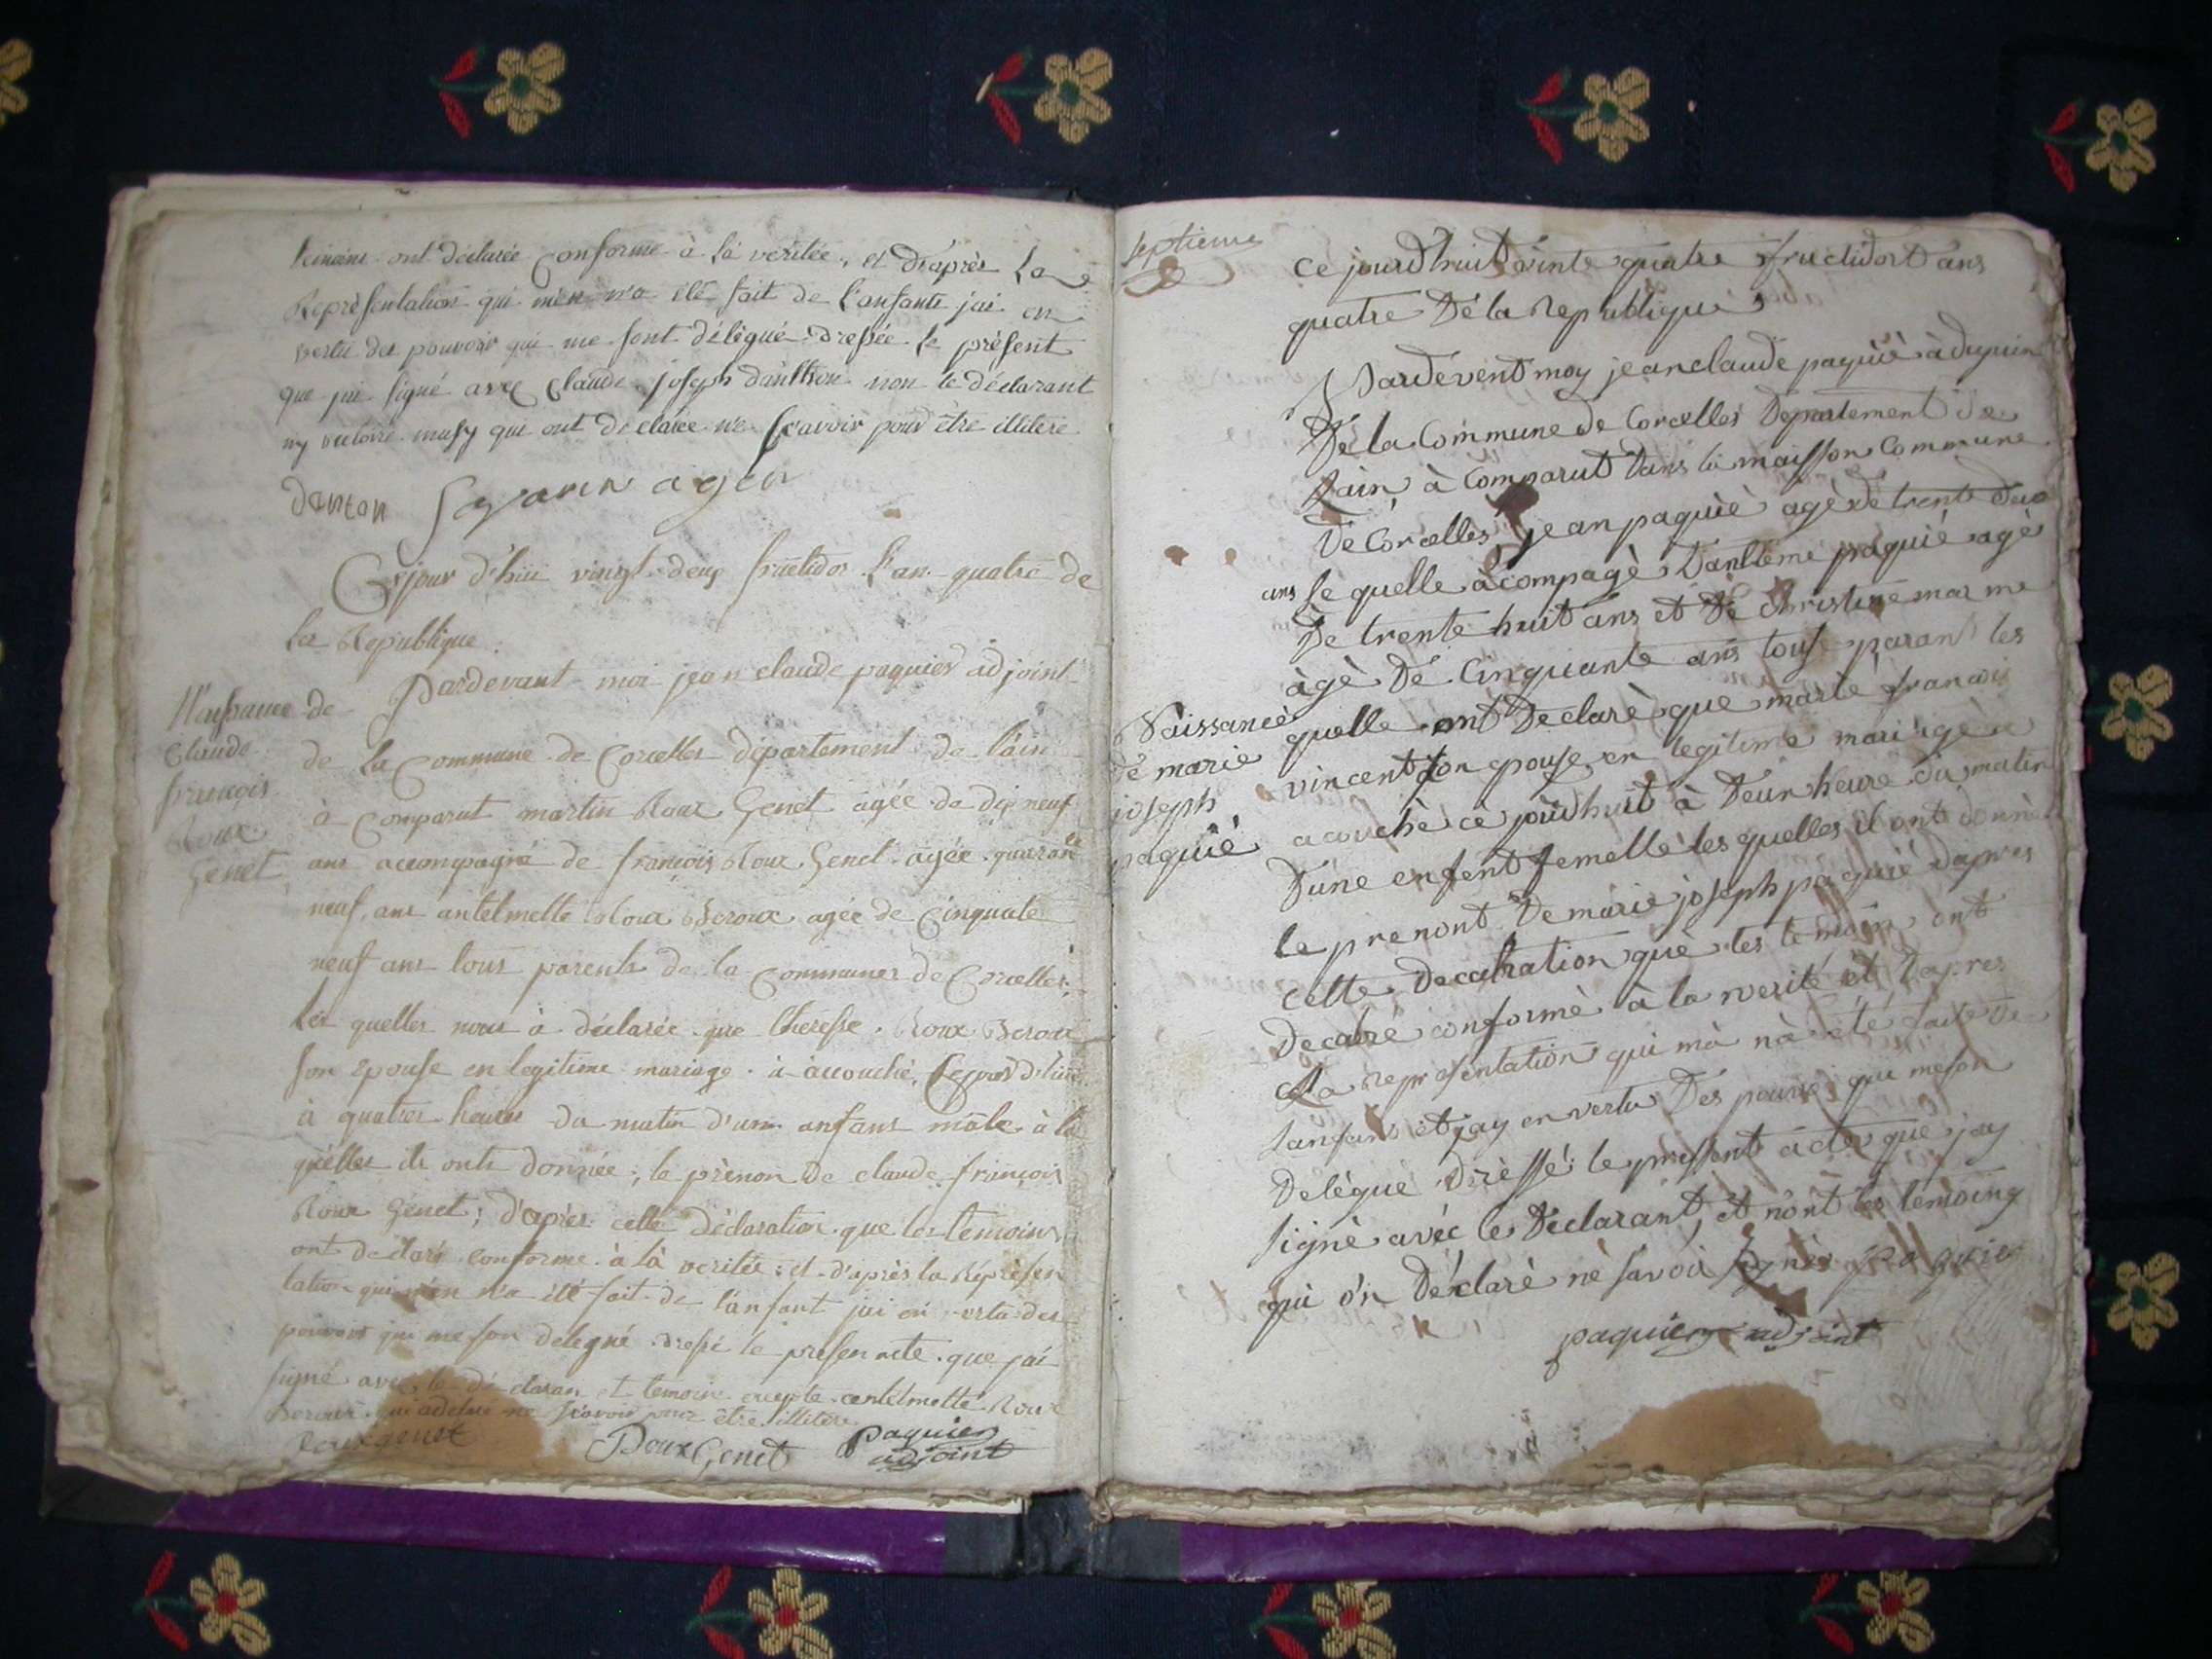 temoins ont déclarée conforme à la veritée, et d'après la
Représentation qui m'en n'a été fait de l'anfants jai en
vertu des pouvoir qui me sont délégué dressée le présent
que jai signé avec claude joseph danthon non le déclarant
ny victoire musy qui ont declarée ne scavoir pour être illitere
danton
Ce jour d'hui vingt deux fructidor l'an quatre de
la Republique.
Pardevant moi jean claude paquier adjoint
de la Commune de Corcelles département de l'ain
à Comparut martin Roux Genet agée de dix neuf
ans accompagné de françois Roux Genet agée quarante
neuf ans antelmette Roux Beroux agée de Cinquate
neuf ans tous parents de la Communes de Corcelles
les quelles nous à déclarée que Theresse Roux Beroux
son epouse en legitime mariage à accouché, Cejour d'hui
à quatres heures du matin d'un anfans mâle à la
quelles ils onts donnée, le prènon de claude françois
Roux Genet; d'après cette Déclaration que les temoins
ont declaré conforme à la veritée; et d'après la Réprésen
tation qui m'en n'a été fait de l'anfant jai en vertu des
pouvoir qui me son delegué dressé le presen acte que jai
signé avec le déclaran et temoins excepte antelmette Roux
Beroux qui a declaré ne scavoir pour être illitere
Rouxgenet RouxGenet paquier
adjoint
Naissance de
Claude
françois
Roux
Genet
septieme
ce jourdhuit vinte quatre fructidort ans
quatre de la Republique
Pardevent moy jeanclaude paquié adjoin
De la Commune de Corcelles Departement de
Lain à Comparut Dans la maisson Commune
De Corcelles jean paquié agè de trente deux
ans le quelle acompagè Dantleme paquié agè
De trente huit ans et de christine marme
àgè De Cinquante ans tous parant les
quelle ont Declarè que marie francois
vincent son epouse en legitime mariage a
acouchè ce jourdhuit à Deux heure du matin
D'une enfent femelle les quelles il ont donnè
le prenont De marie joseph paquié dapres
cette Decalration que les temoin ont
Decalre conformè à la verité et Dapres
La representation qui mà nà été faite De
Lanfant et jay en vertu Des pouvoi qui meson
Delègué Dressé le pressent acte que jay
signè avéc le Declarant et nont les temoing
qui ón Déclarè nè savoir signer paquier
paquier adjoint
Naissance
de marie
joseph
paquié